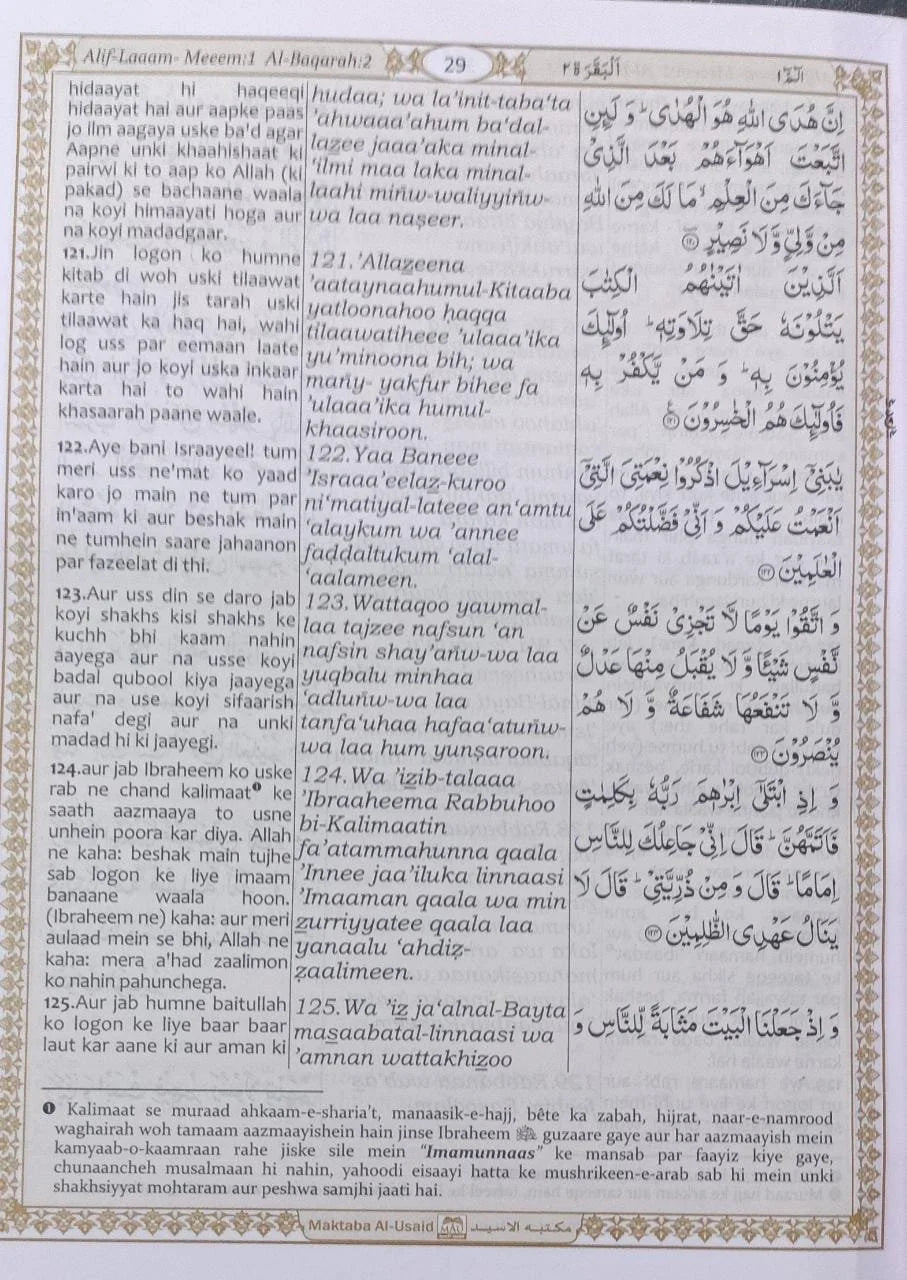 Alif-Laaam- Meeem:1 Al-Baqarah:2
29
اَلْبَقَرَة ٢
الٓمّٓ ١
hidaayat hi haqeeqi
hidaayat hai aur aapke paas
jo ilm aagaya uske ba'd agar
Aapne unki khaahishaat ki
pairwi ki to aap ko Allah (ki
pakad) se bachaane waala
na koyi himaayati hoga aur
na koyi madadgaar.
121.Jin logon ko humne
kitab di woh uski tilaawat
karte hain jis tarah uski
tilaawat ka haq hai, wahi
log uss par eemaan laate
hain aur jo koyi uska inkaar
karta hai to wahi hain
khasaarah paane waale.
122.Aye bani Israayeel! tum
meri uss ne'mat ko yaad
karo jo main ne tum par
in'aam ki aur beshak main
ne tumhein saare jahaanon
par fazeelat di thi.
123.Aur uss din se daro jab
koyi shakhs kisi shakhs ke
kuchh bhi kaam nahin
aayega aur na usse koyi
badal qubool kiya jaayega
aur na use koyi sifaarish
nafa' degi aur na unki
madad hi ki jaayegi.
124.aur jab Ibraheem ko uske
rab ne chand kalimaat❶ ke
saath aazmaaya to usne
unhein poora kar diya. Allah
ne kaha: beshak main tujhe
sab logon ke liye imaam
banaane waala hoon.
(Ibraheem ne) kaha: aur meri
aulaad mein se bhi, Allah ne
kaha: mera a'had zaalimon
ko nahin pahunchega.
125.Aur jab humne baitullah
ko logon ke liye baar baar
laut kar aane ki aur aman ki
hudaa; wa la’init-taba‘ta
’ahwaaa’ahum ba‘dal-
lazee jaaa’aka minal-
‘ilmi maa laka minal-
laahi miñw-waliyyiñw-
wa laa naṣeer.
121.’Allazeena
’aataynaahumul-Kitaaba
yatloonahoo ḥaqqa
tilaawatiheee ’ulaaa’ika
yu’minoona bih; wa
mañy- yakfur bihee fa
’ulaaa’ika humul-
khaasiroon.
122.Yaa Baneee
’Israaa’eelaz-kuroo
ni‘matiyal-lateee an‘amtu
‘alaykum wa ’annee
faḍḍaltukum ‘alal-
‘aalameen.
123.Wattaqoo yawmal-
laa tajzee nafsun ‘an
nafsin shay’añw-wa laa
yuqbalu minhaa
‘adluñw-wa laa
tanfa‘uhaa hafaa‘atuñw-
wa laa hum yunṣaroon.
124.Wa ’izib-talaaa
’Ibraaheema Rabbuhoo
bi-Kalimaatin
fa’atammahunna qaala
’Innee jaa’iluka linnaasi
’Imaaman qaala wa min
zurriyyatee qaala laa
yanaalu ‘ahdiẓ-
ẓaalimeen.
125.Wa ’iz ja‘alnal-Bayta
masaabatal-linnaasi wa
’amnan wattakhizoo
اِنَّ هُدَى اللّٰهِ هُوَ الْهُدٰىؕ وَ لَىِٕنِ
اتَّبَعْتَ اَهْوَآءَهُمْ بَعْدَ الَّذِیْ
جَآءَكَ مِنَ الْعِلْمِۙ مَا لَكَ مِنَ اللّٰهِ
مِنْ وَّلِیٍّ وَّ لَا نَصِیْرٍ ۝۱۲۰
اَلَّذِیْنَ اٰتَیْنٰهُمُ الْكِتٰبَ
یَتْلُوْنَهٗ حَقَّ تِلَاوَتِهٖؕ اُولٰٓىِٕكَ
یُؤْمِنُوْنَ بِهٖؕ وَ مَنْ یَّكْفُرْ بِهٖ
فَاُولٰٓىِٕكَ هُمُ الْخٰسِرُوْنَ ۝۱۲۱
یٰبَنِیْۤ اِسْرَآءِیْلَ اذْكُرُوْا نِعْمَتِیَ الَّتِیْۤ
اَنْعَمْتُ عَلَیْكُمْ وَ اَنِّیْ فَضَّلْتُكُمْ عَلَى
الْعٰلَمِیْنَ ۝۱۲۲
وَ اتَّقُوْا یَوْمًا لَّا تَجْزِیْ نَفْسٌ عَنْ
نَّفْسٍ شَیْــٴًـا وَّ لَا یُقْبَلُ مِنْهَا عَدْلٌ
وَّ لَا تَنْفَعُهَا شَفَاعَةٌ وَّ لَا هُمْ
یُنْصَرُوْنَ ۝۱۲۳
وَ اِذِ ابْتَلٰۤى اِبْرٰهٖمَ رَبُّهٗ بِكَلِمٰتٍ
فَاَتَمَّهُنَّؕ قَالَ اِنِّیْ جَاعِلُكَ لِلنَّاسِ
اِمَامًاؕ قَالَ وَ مِنْ ذُرِّیَّتِیْؕ قَالَ لَا
یَنَالُ عَهْدِی الظّٰلِمِیْنَ ۝۱۲۴
وَ اِذْ جَعَلْنَا الْبَیْتَ مَثَابَةً لِّلنَّاسِ وَ
❶ Kalimaat se muraad ahkaam-e-sharia't, manaasik-e-hajj, bête ka zabah, hijrat, naar-e-namrood
waghairah woh tamaam aazmaayishein hain jinse Ibraheem ﷺ guzaare gaye aur har aazmaayish mein
kamyaab-o-kaamraan rahe jiske sile mein “Imamunnaas” ke mansab par faayiz kiye gaye,
chunaancheh musalmaan hi nahin, yahoodi eisaayi hatta ke mushrikeen-e-arab sab hi mein unki
shakhsiyyat mohtaram aur peshwa samjhi jaati hai.
Maktaba Al-Usaid MAU مكتبه الاسيد